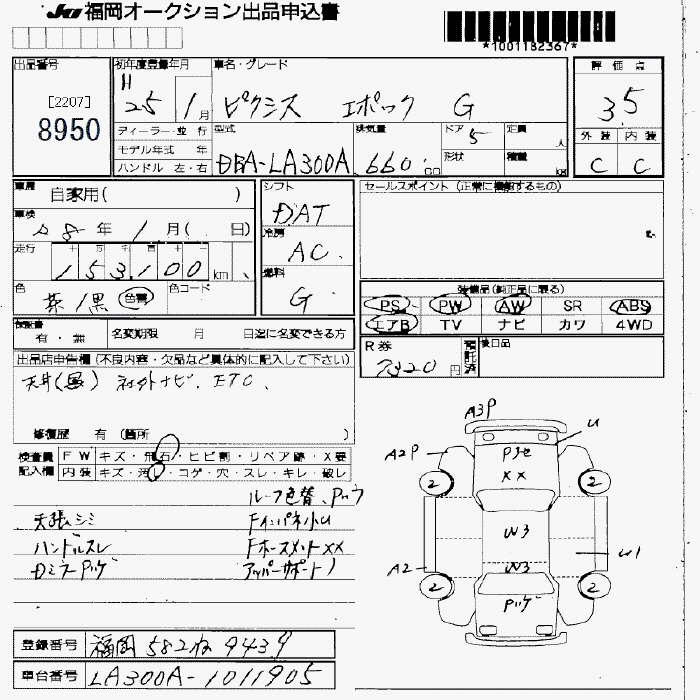 JU 福岡オークション出品申込書
*1001182367*
出品番号
[2207]
8950
初年度登録年月
H 25 1月
車名・グレード
ピクシス エポック G
評価点
3.5
外装 内装
C C
ディーラー・並行
モデル年式 年
ハンドル 左・右
型式
DBA-LA300A
排気量
660 cc
ドア 5
形状
定員 人
積量 kg
車歴 自家用( )
車検
28年 1月( 日)
走行
153,100 km
色 茶/黒 色替
色コード
シフト
DAT
冷房
AC
燃料
G
セールスポイント (正常に機能するもの)
装備品(純正品に限る)
PS PW AW SR ABS
エアB TV ナビ カワ 4WD
R券
7320円
預託済
後日品
保証書
有・無
名変期限 月 日迄に名変できる方
出品店申告欄 (不良内容・欠品など具体的に記入して下さい)
天井(黒) 社外ナビ. ETC.
修復歴 有 (箇所 )
検査員記入欄
FW キズ・飛石・ヒビ割・リペア跡・X要
内装 キズ・汚・コゲ・穴・スレ・キレ・破レ
ルーフ色替、Pッケ
天張シミ Fインパネ小U
ハンドルスレ FホースメントXX
DミラーPッゲ アッパーサポート
登録番号 福岡 582 ね 9439
車台番号 LA300A-1011905
A3P
U
A2P
XX
2 2
W3
U1
A2
W3
2 2
Pッゲ